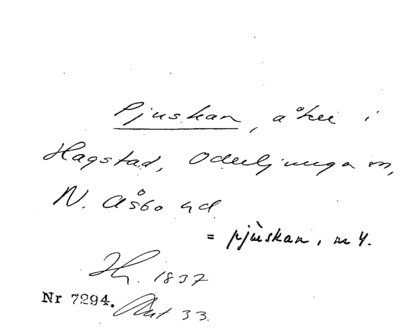 Pjuskan, åker i
Hagstad, Oderljunga sn,
N. Åsbo hd.
= pjùskan, m 4.
1837
Nr 7294. 33.